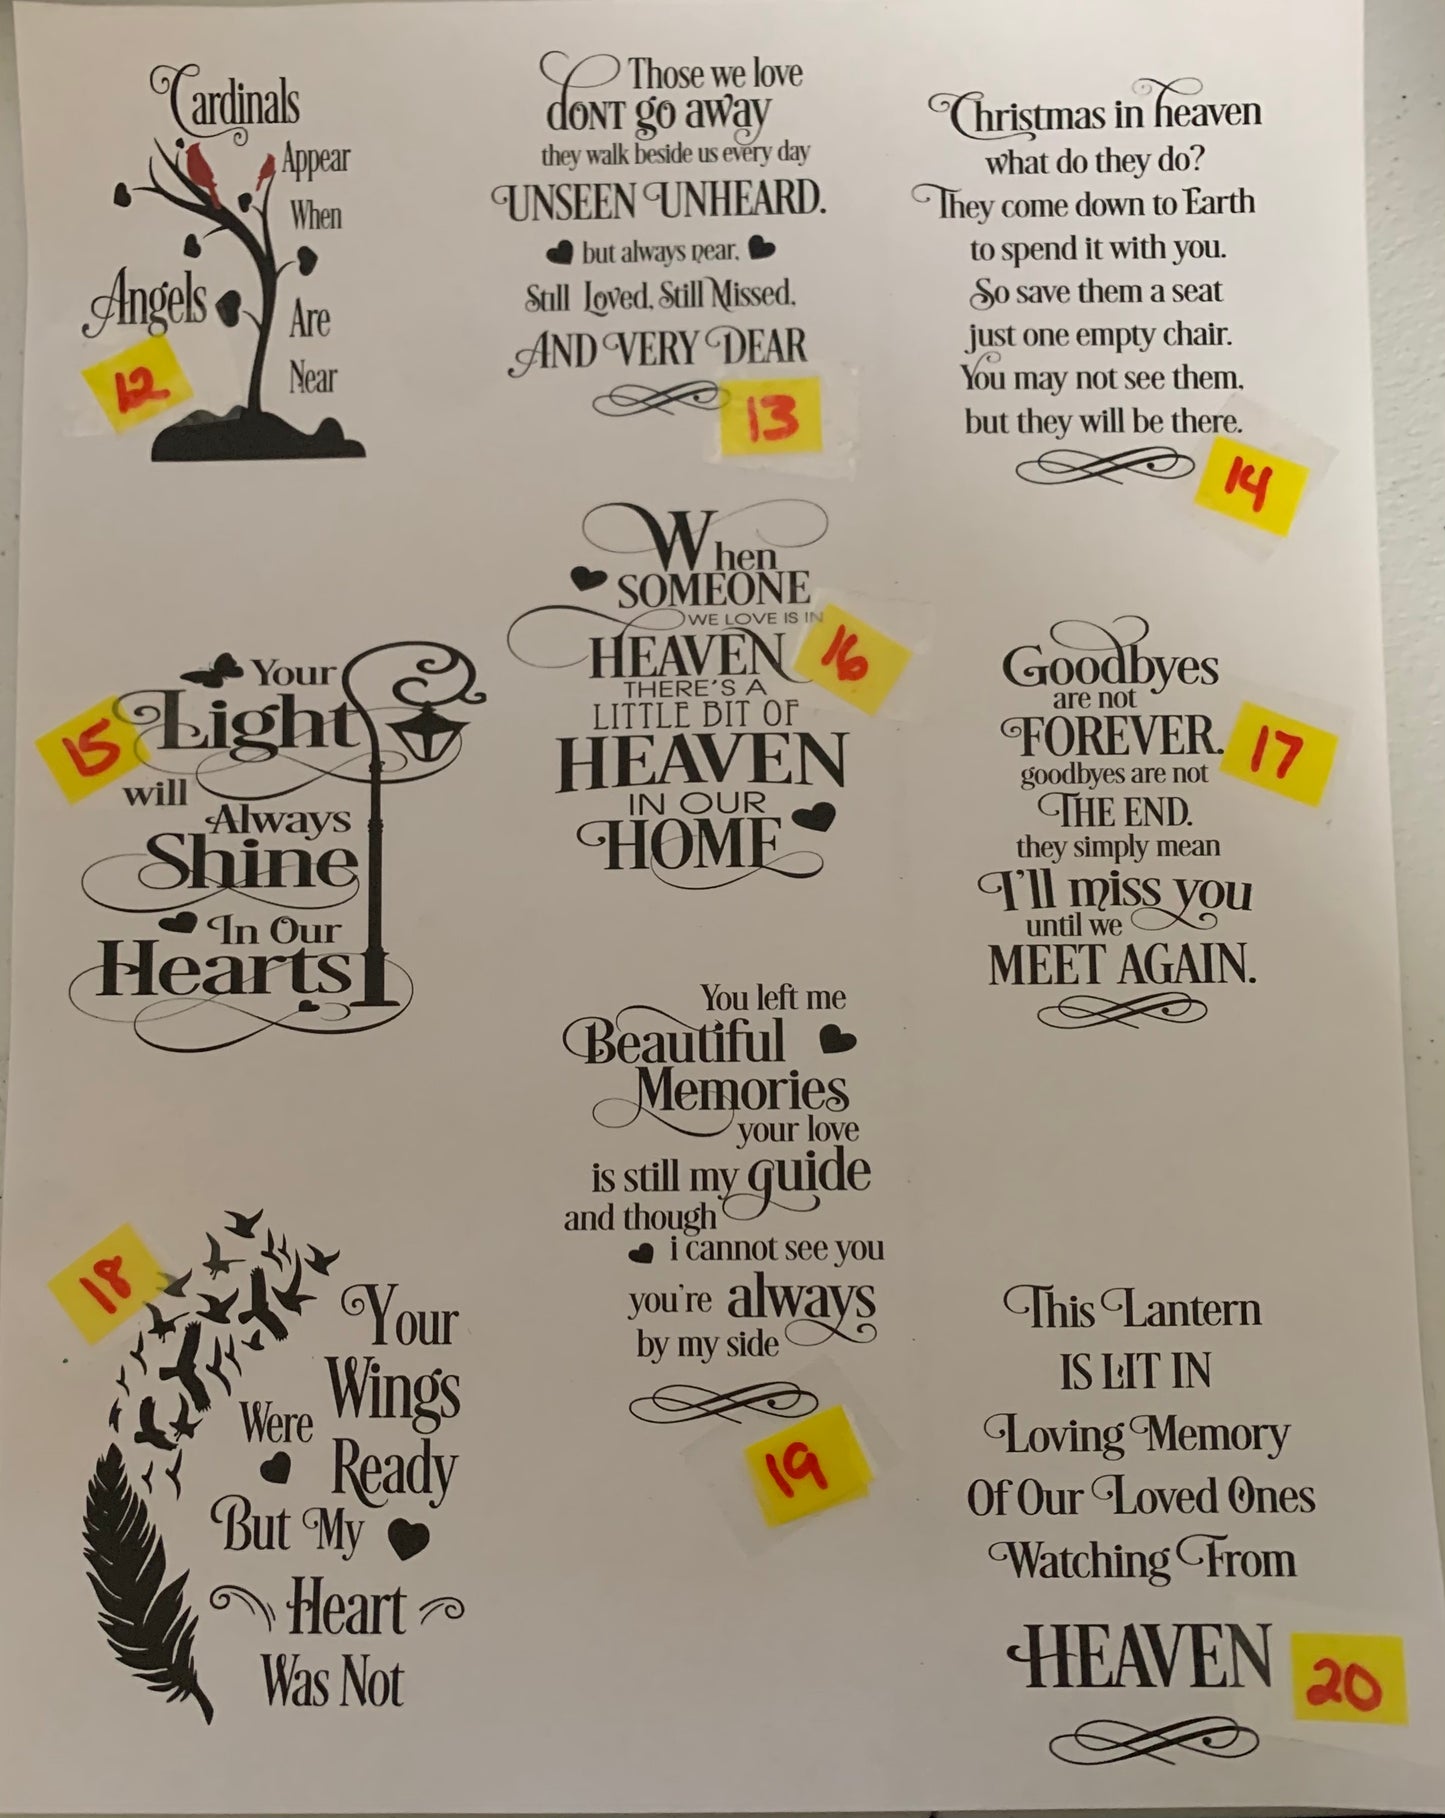 Cardinals
Appear
When
Angels
Are
Near
12
Those we love
dONT go away
they walk beside us every day
UNSEEN UNHEARD.
but always near,
Still Loved, Still Missed,
AND VERY DEAR
13
Christmas in heaven
what do they do?
They come down to Earth
to spend it with you.
So save them a seat
just one empty chair.
You may not see them,
but they will be there.
14
Your
Light
will
Always
Shine
In Our
Hearts
15
When
SOMEONE
WE LOVE IS IN
HEAVEN
THERE'S A
LITTLE BIT OF
HEAVEN
IN OUR
HOME
16
Goodbyes
are not
FOREVER.
goodbyes are not
THE END.
they simply mean
I'll miss you
until we
MEET AGAIN.
17
18
Your
Wings
Were
Ready
But My
Heart
Was Not
You left me
Beautiful
Memories
your love
is still my guide
and though
i cannot see you
you're always
by my side
19
This Lantern
IS LIT IN
Loving Memory
Of Our Loved Ones
Watching From
HEAVEN
20